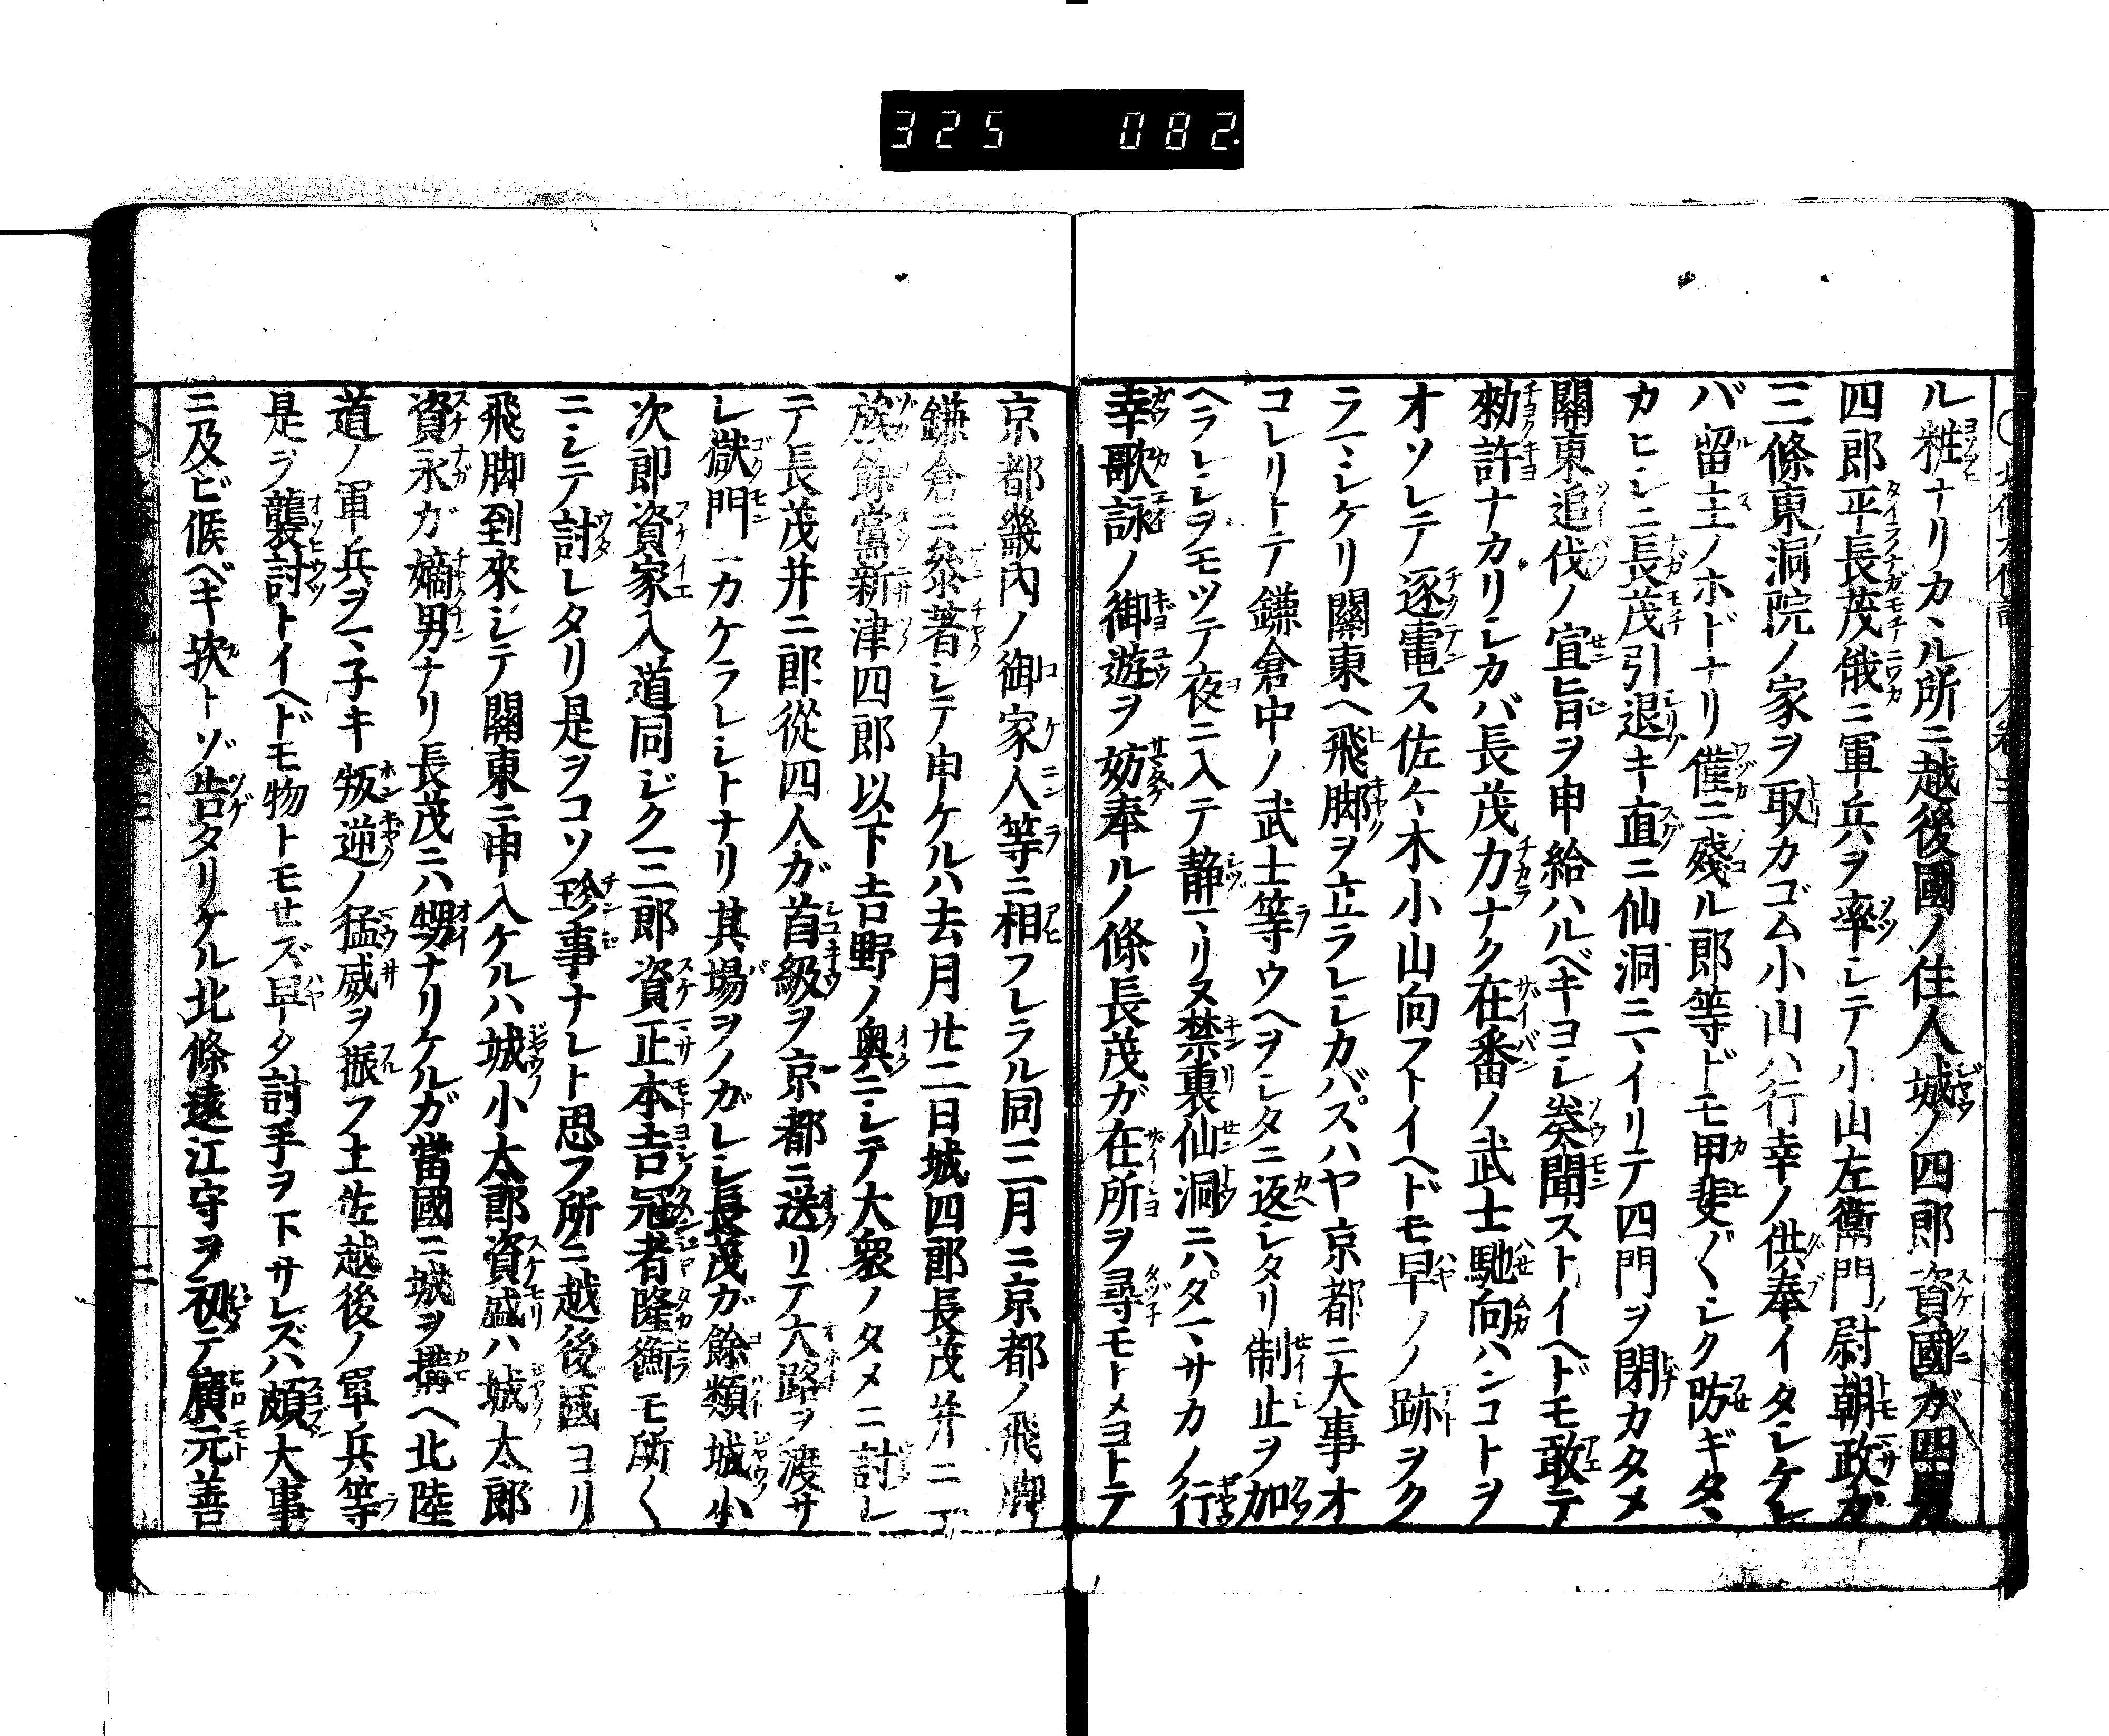 325 082
ル粧ナリカヽル所ニ越後國ノ住人城ノ四郎資國ガ四男
四郎平長茂俄ニ軍兵ヲ率シテ小山左衞門ノ尉朝政ガ
三條東洞院ノ家ヲ取カゴム小山ハ行幸ノ供奉イタシケレ
バ留主ノホドナリ僅ニ殘ル郎等ドモ甲斐〴〵シク防ギタヽ
カヒシニ長茂引退キ直ニ仙洞ニマイリテ四門ヲ閉カタメ
關東追伐ノ宣旨ヲ申給ハルベキヨシ奏聞ストイヘドモ敢テ
勅許ナカリシカバ長茂力ナク在番ノ武士馳向ハンコトヲ
オソレテ逐電ス佐々木小山向フトイヘドモ早ソノ跡ヲク
ラマシケリ關東ヘ飛脚ヲ立ラレシカバスハヤ京都ニ大事オ
コレリトテ鎌倉中ノ武士等ウヘヲシタニ返シタリ制止ヲ加
ヘラレシヲモツテ夜ニ入テ靜マリヌ禁裏仙洞ニハタマサカノ行
幸歌詠ノ御遊ヲ妨奉ルノ條長茂ガ在所ヲ尋モトメヨトテ
京都畿内ノ御家人等ニ相フレラル同三月ニ京都ノ飛脚
鎌倉ニ參著シテ申ケルハ去月廿二日城四郎長茂并ニ一
族餘黨新津四郎以下吉野ノ奧ニシテ大衆ノタメニ討レ
テ長茂并ニ郎從四人ガ首級ヲ京都ニ送リテ大路ヲ渡サ
レ獄門ニカケラレシトナリ其場ヲノガレシ長茂ガ餘類城小
次郎資家入道同ジク三郎資正本吉冠者隆衡モ所〳〵
ニシテ討レタリ是ヲコソ珍事ナレト思フ所ニ越後國ヨリ
飛脚到來シテ關東ニ申入ケルハ城小太郎資盛ハ城太郎
資永ガ嫡男ナリ長茂ニハ甥ナリケルガ當國ニ城ヲ構ヘ北陸
道ノ軍兵ヲマネキ叛逆ノ猛威ヲ振フ土佐越後ノ軍兵等
是ヲ襲討トイヘドモ物トモセズ早ク討手ヲ下サレズハ頗大事
ニ及ビ候ベキ歟トゾ告タリケル北條遠江守ヲ初テ廣元善